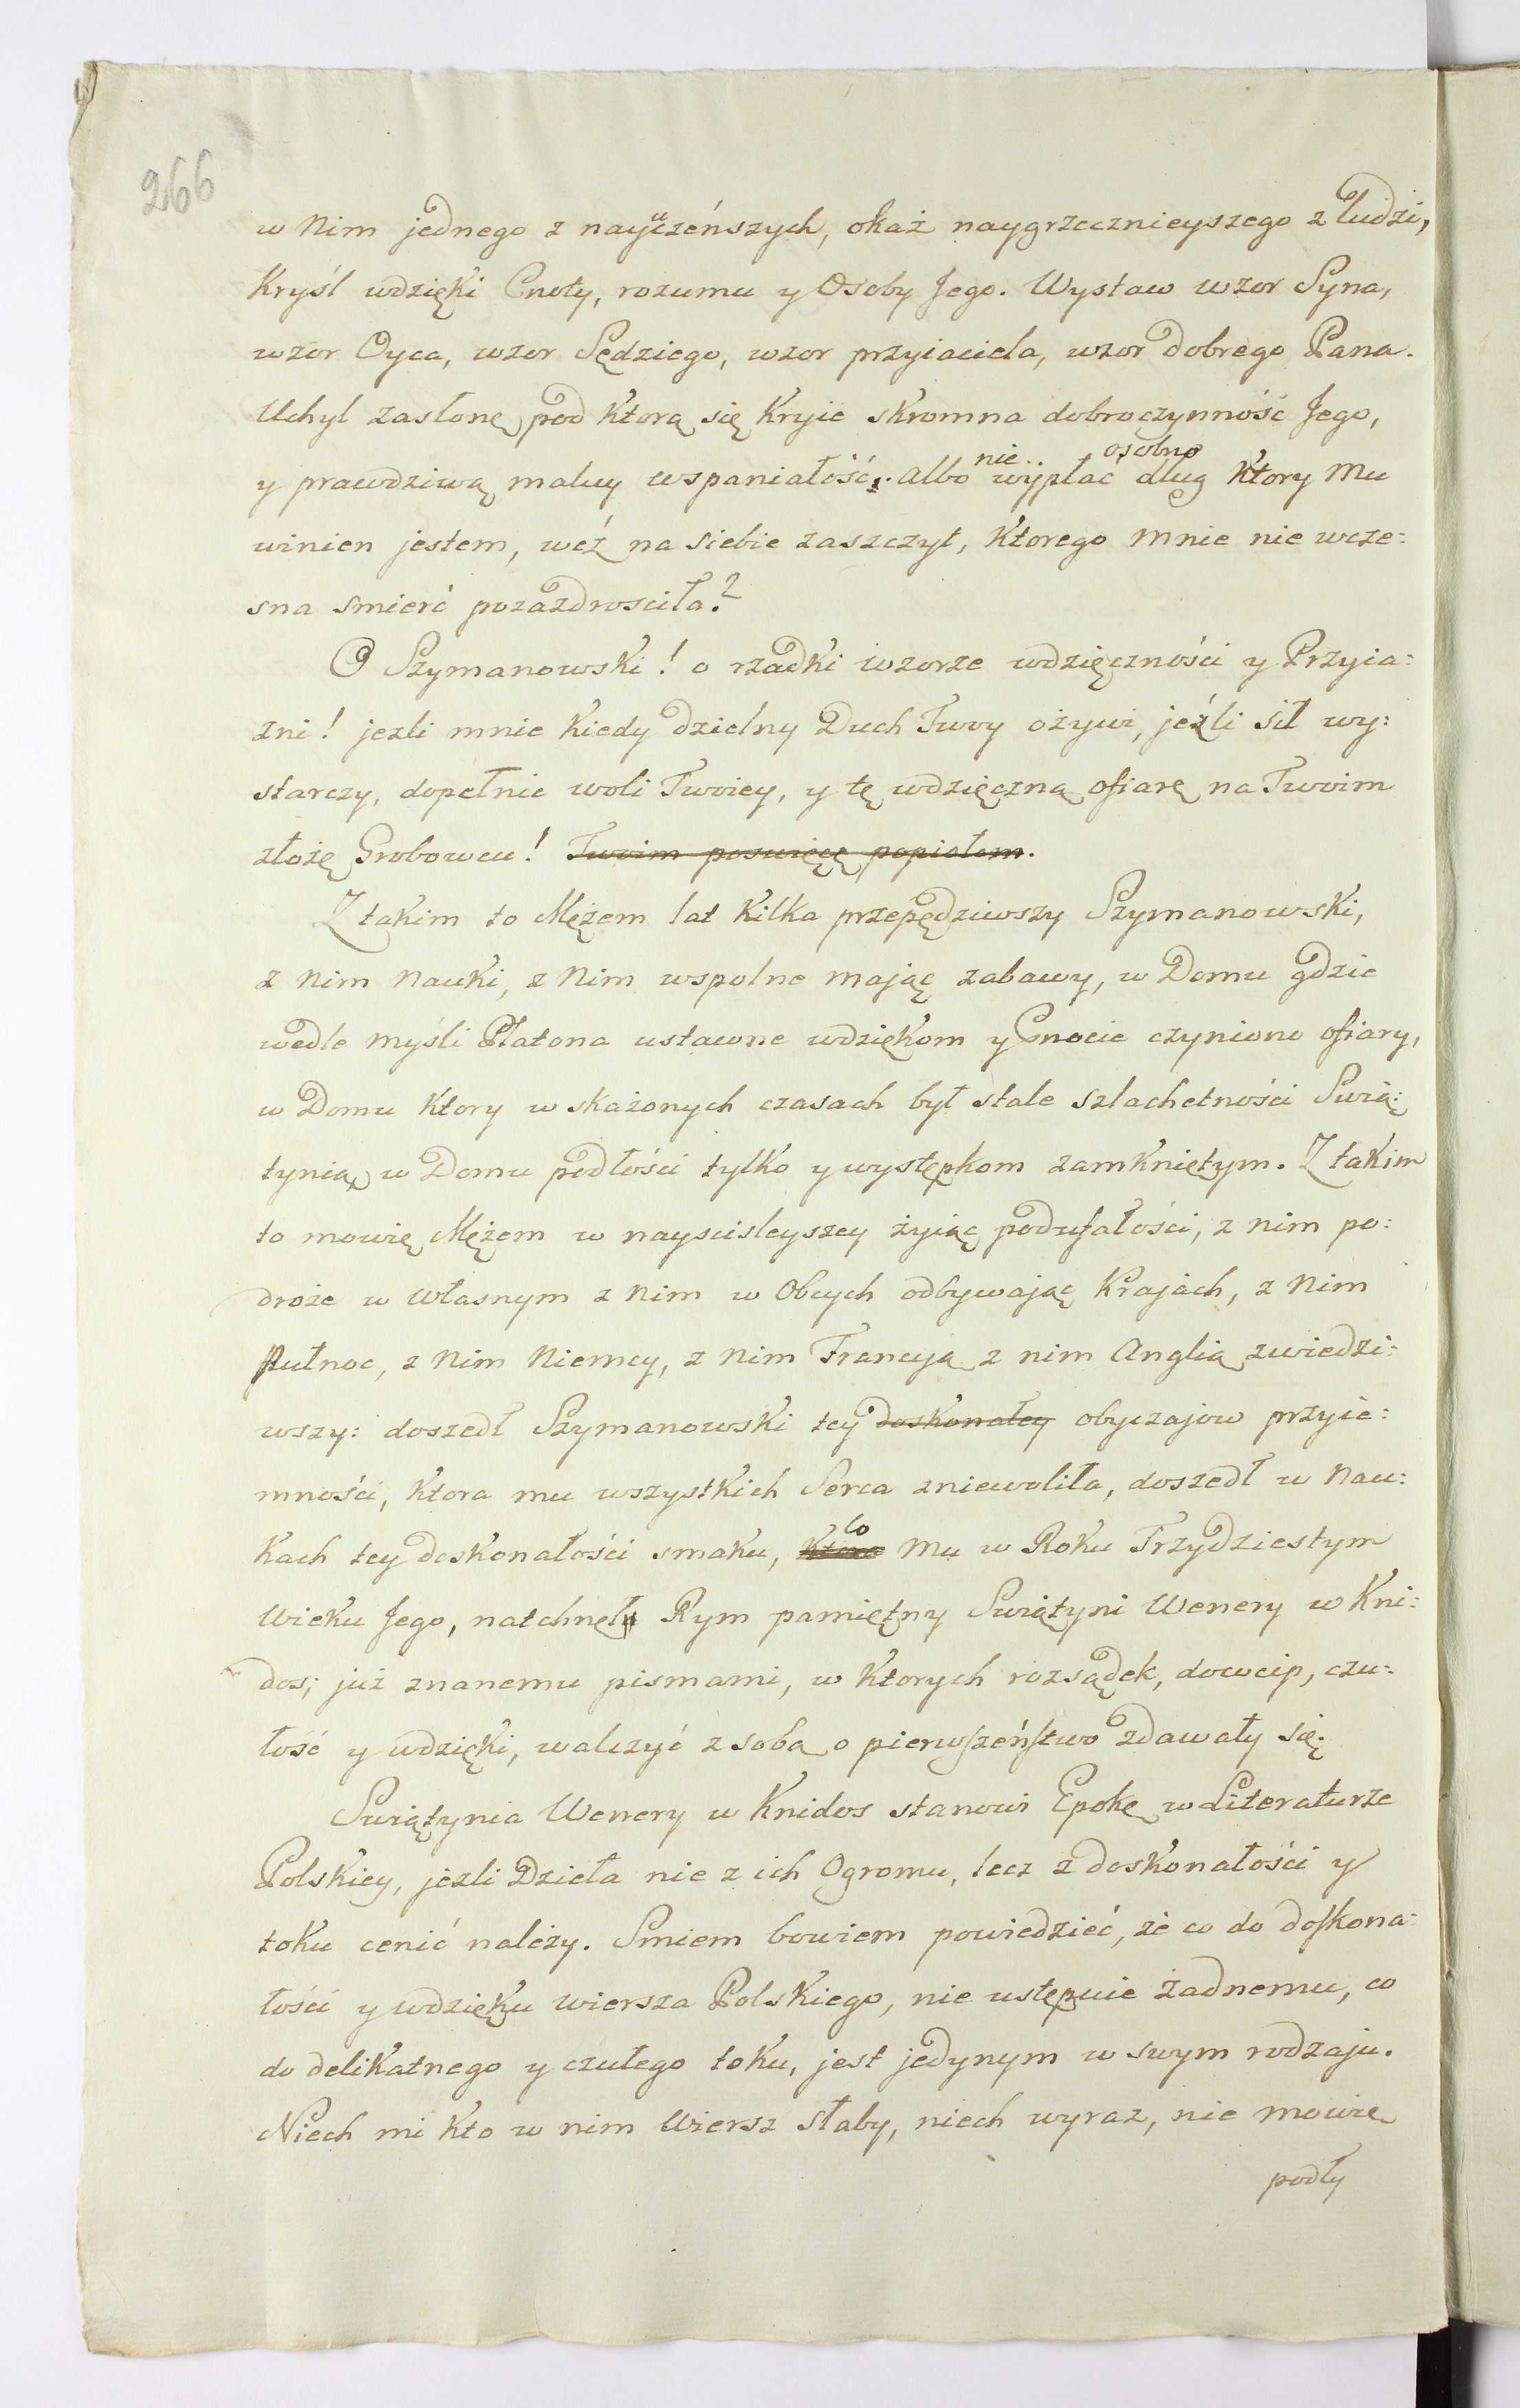 266
w Nim jednego z nayuczeńszych, okaż naygrzecznieyszego z ludzi,
Kryśl wdzięki Cnoty, rozumu y Osoby Jego. Wystaw wzor Syna,
wzor Oyca, wzor Sędziego, wzor przyiaciela, wzor dobrego Pana.
Uchyl zasłonę pod Ktorą się Kryie skromna dobroczynność Jego,
nie.. osobno
y prawdziwą maluy wspaniałość. Albo wypłać dług Ktory Mu
winien jestem, weź na siebie zaszczyt, Ktorego mnie nie wcze:
sna smierć pozazdrosciła?
O Szymanowski! o rzadki wzorze wdzięczności y Przyia:
zni! jezli mnie Kiedy dzielny Duch Twoy ożywi, jeźli sił wy:
starczy, dopełnie woli Twoiey, y tę wdzięczną ofiarę na Twoim
złożę Grobowcu! Twoim poswięcę popiołom.
Z takim to Mężem lat Kilka przepędziwszy Szymanowski,
z Nim Nauki, z Nim wspolne mając zabawy, w Domu gdzie
wedle myśli Platona ustawne wdziękom y Cnocie czyniono ofiary,
w Domu Ktory w skażonych czasach był stale szlachetności Swią:
tynią, w Domu podłości tylko y występkom zamkniętym. Z takim
to mowię Mężem w nayscisleyszey żyiąc podufałości, z nim po:
droże w własnym z Nim w Obcych odbywając Krajach, z Nim
Pułnoc, z Nim Niemcy, z Nim Francyą z nim Anglią zwiedzi:
wszy: doszedł Szymanowski tey doskonałey obyczajow przyie:
mności, Ktora mu wszystkich Serca zniewoliła, doszedł w Nau:
co
Kach tey doskonałości smaku, Ktora Mu w Roku Trzydziestym
Wieku Jego, natchnęła Rym pamiętny Swiątyni Wenery w Kni:
dos; już znanemu pismami, w Ktorych rozsądek, dowcip, czu:
łość y wdzięki, walczyć z sobą o pierwszeństwo zdawały się.
Swiątynia Wenery w Knidos stanowi Epokę w Literaturze
Polskiey, jezli Dzieła nie z ich Ogromu, lecz z doskonałości y
toku cenić należy. Smiem bowiem powiedzieć, że co do doskona:
łości y wdzięku wiersza Polskiego, nie ustępuie żadnemu, co
do delikatnego y czułego toku, jest jedynym w swym rodzaju.
Niech mi Kto w nim Wiersz słaby, niech wyraz, nie mowię
podły